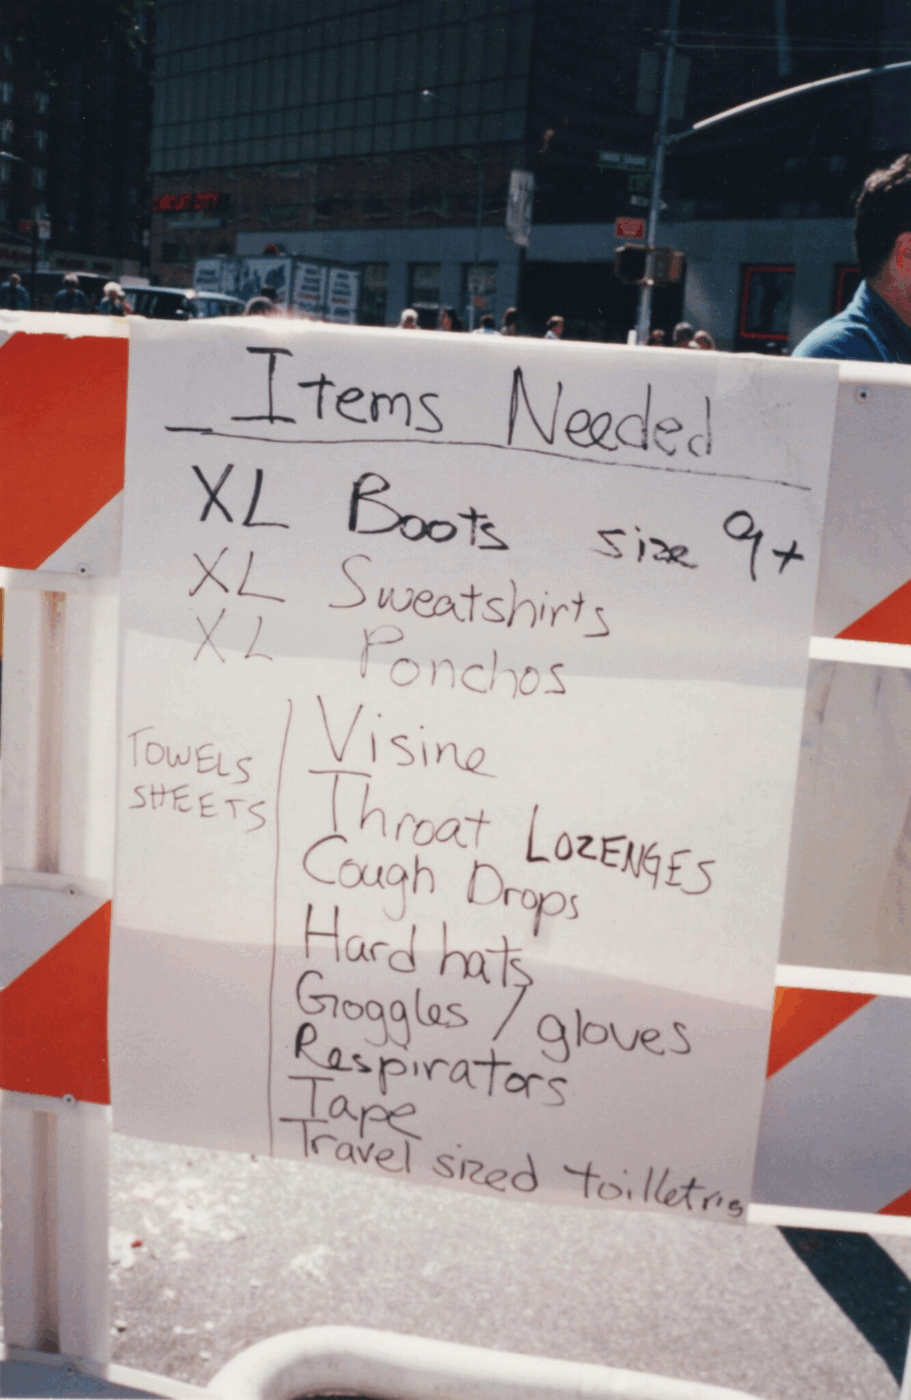 CIRCUIT CITY
Items Needed
XL Boots size 9+
XL Sweatshirts
XL Ponchos
TOWELS
SHEETS
Visine
Throat LOZENGES
Cough Drops
Hard hats
Goggles / gloves
Respirators
Tape
Travel sized toilletris